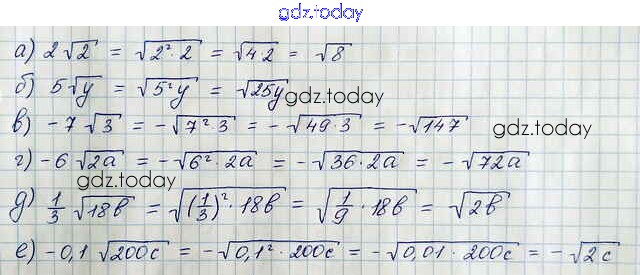 gdz.today
а) 2√2 = √(2²·2) = √(4·2) = √8
б) 5√y = √(5²y) = √(25y) gdz.today
в) -7√3 = -√(7²·3) = -√(49·3) = -√147 gdz.today
г) -6√(2a) = -√(6²·2a) = -√(36·2a) = -√(72a)
gdz.today
д) 1/3 √(18b) = √((1/3)²·18b) = √(1/9·18b) = √(2b)
е) -0,1√(200c) = -√(0,1²·200c) = -√(0,01·200c) = -√(2c)